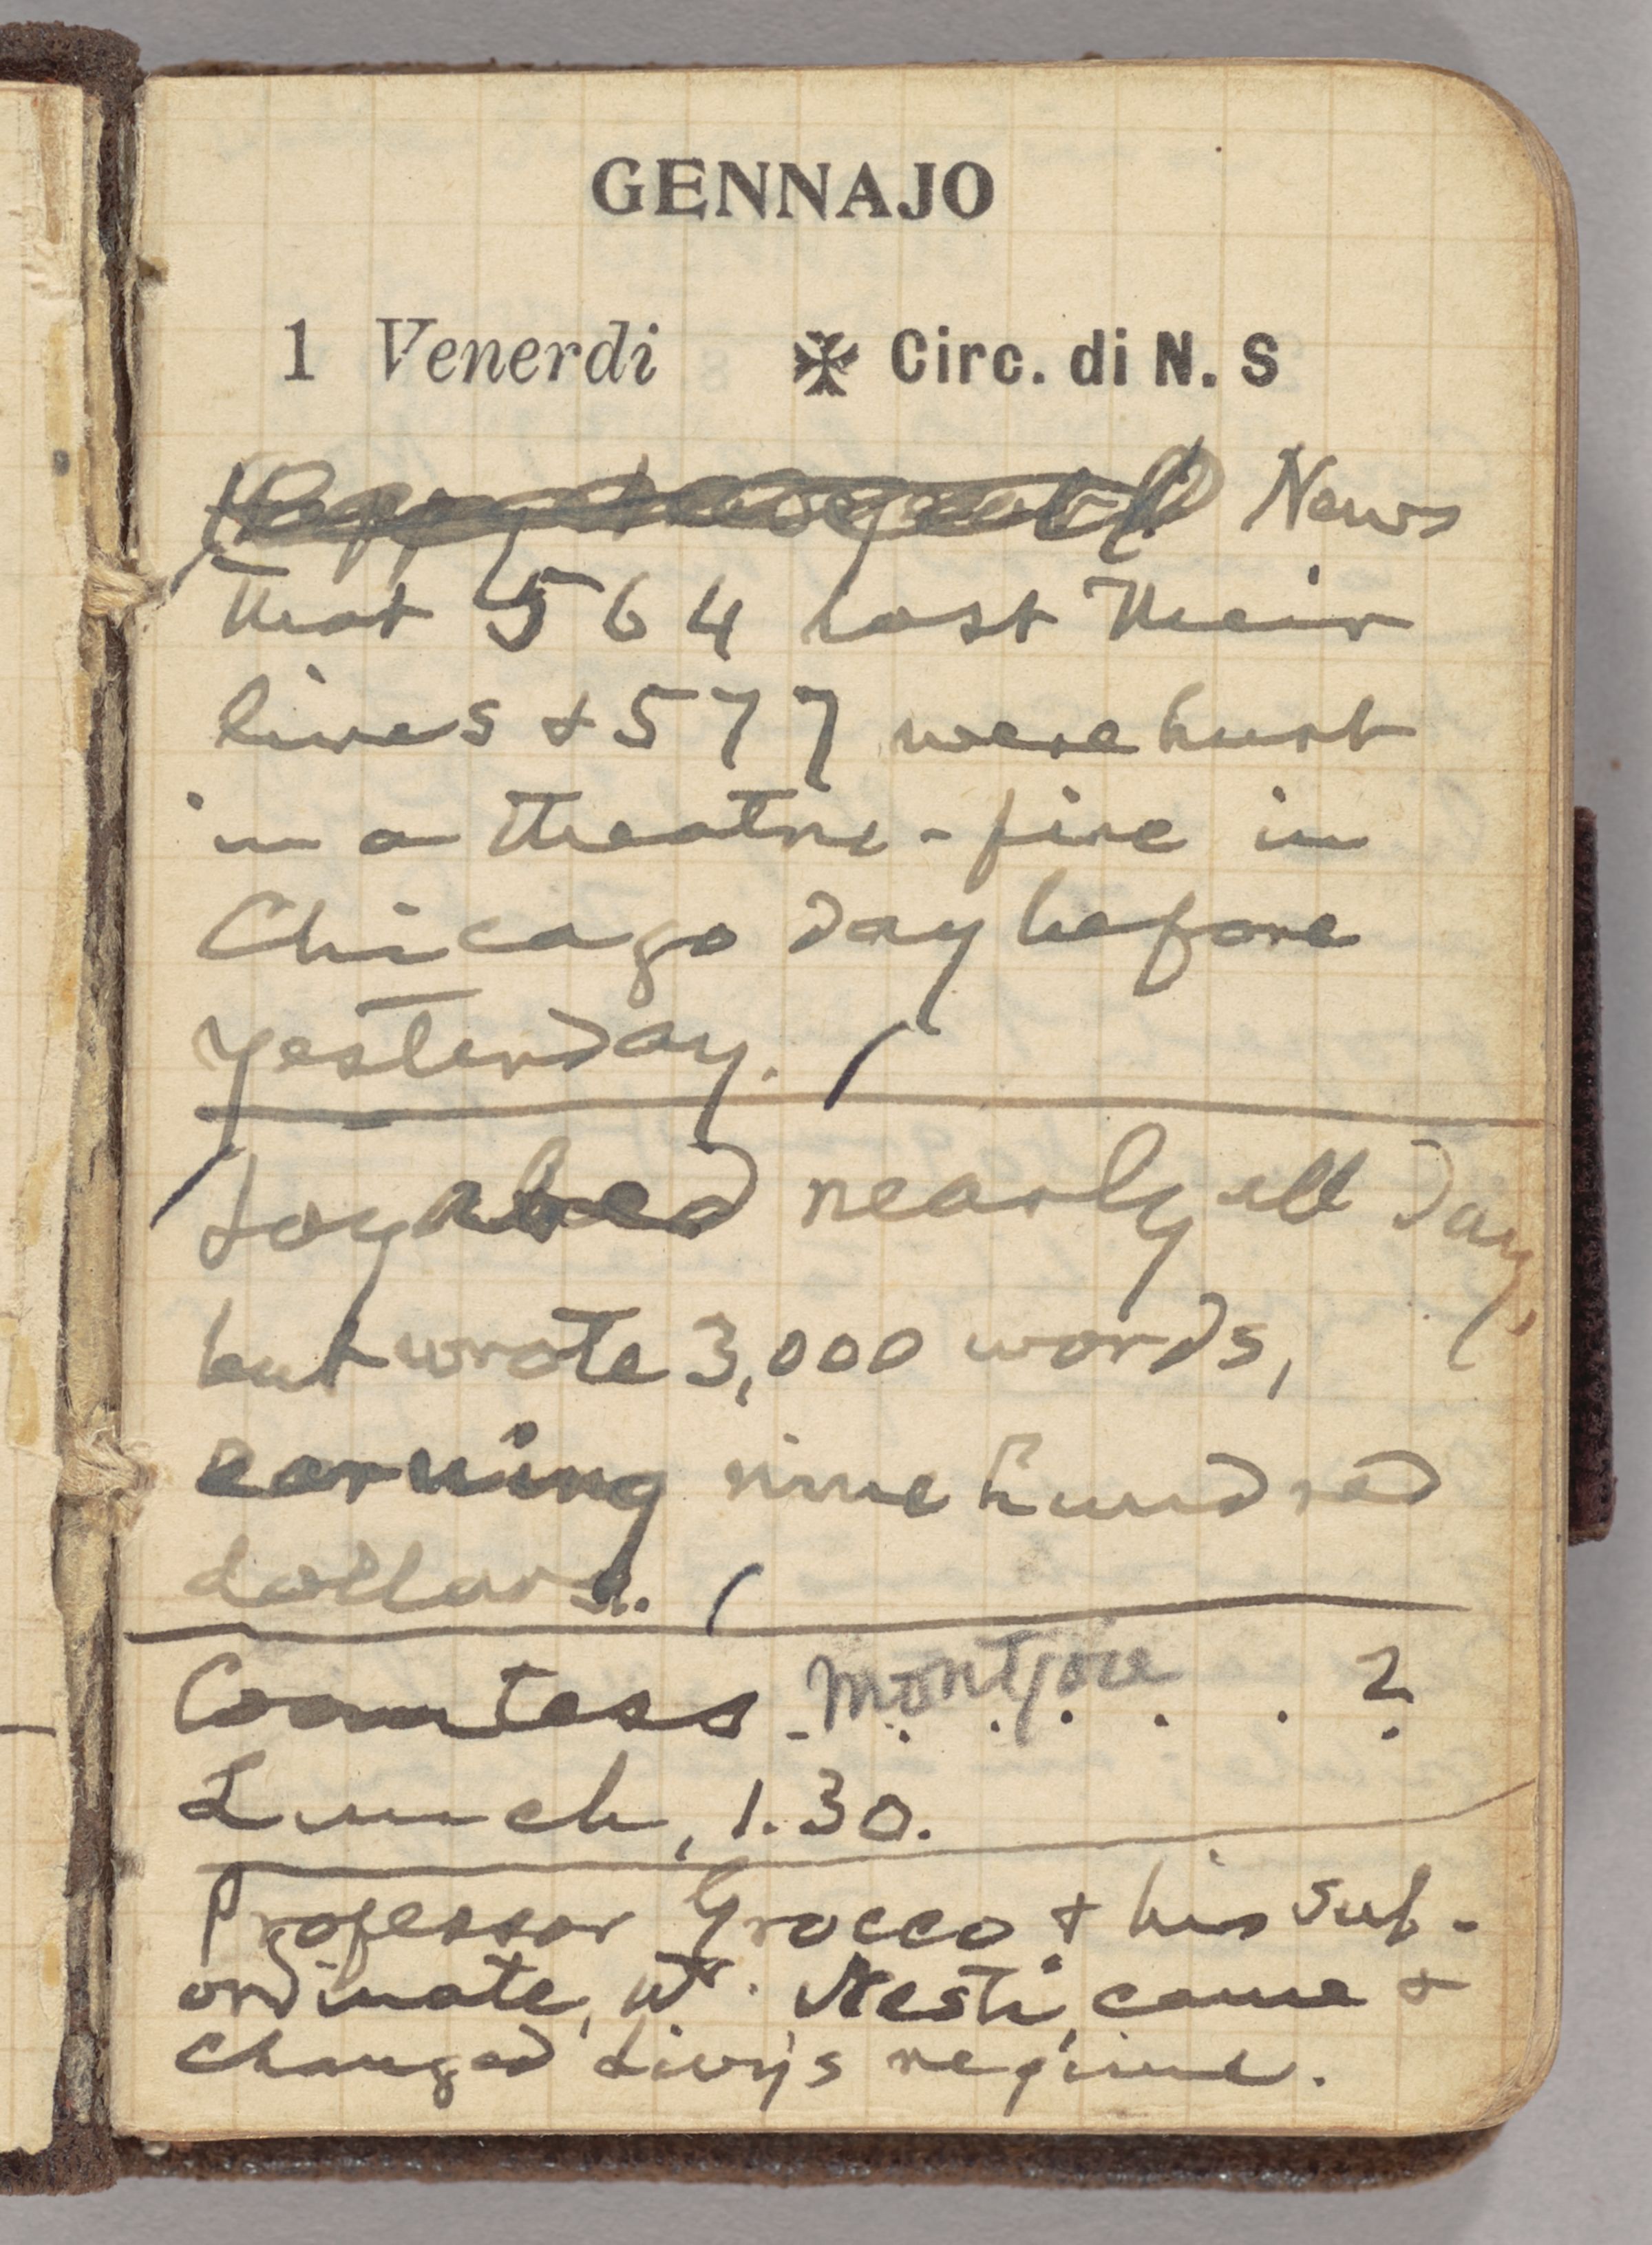 GENNAJO
1 Venerdi ✠ Circ. di N. S
News
that 564 lost their
lives & 577 were hurt
in a theatre-fire in
Chicago day before
yesterday.
Lay abed nearly all day,
but wrote 3,000 words,
earning nine hundred
dollars.
Countess Montjoie . . . . ?
Lunch, 1.30.
Professor Grocco & his sub-
ordinate, Dr. Nesti, came &
changed Livy's regime.